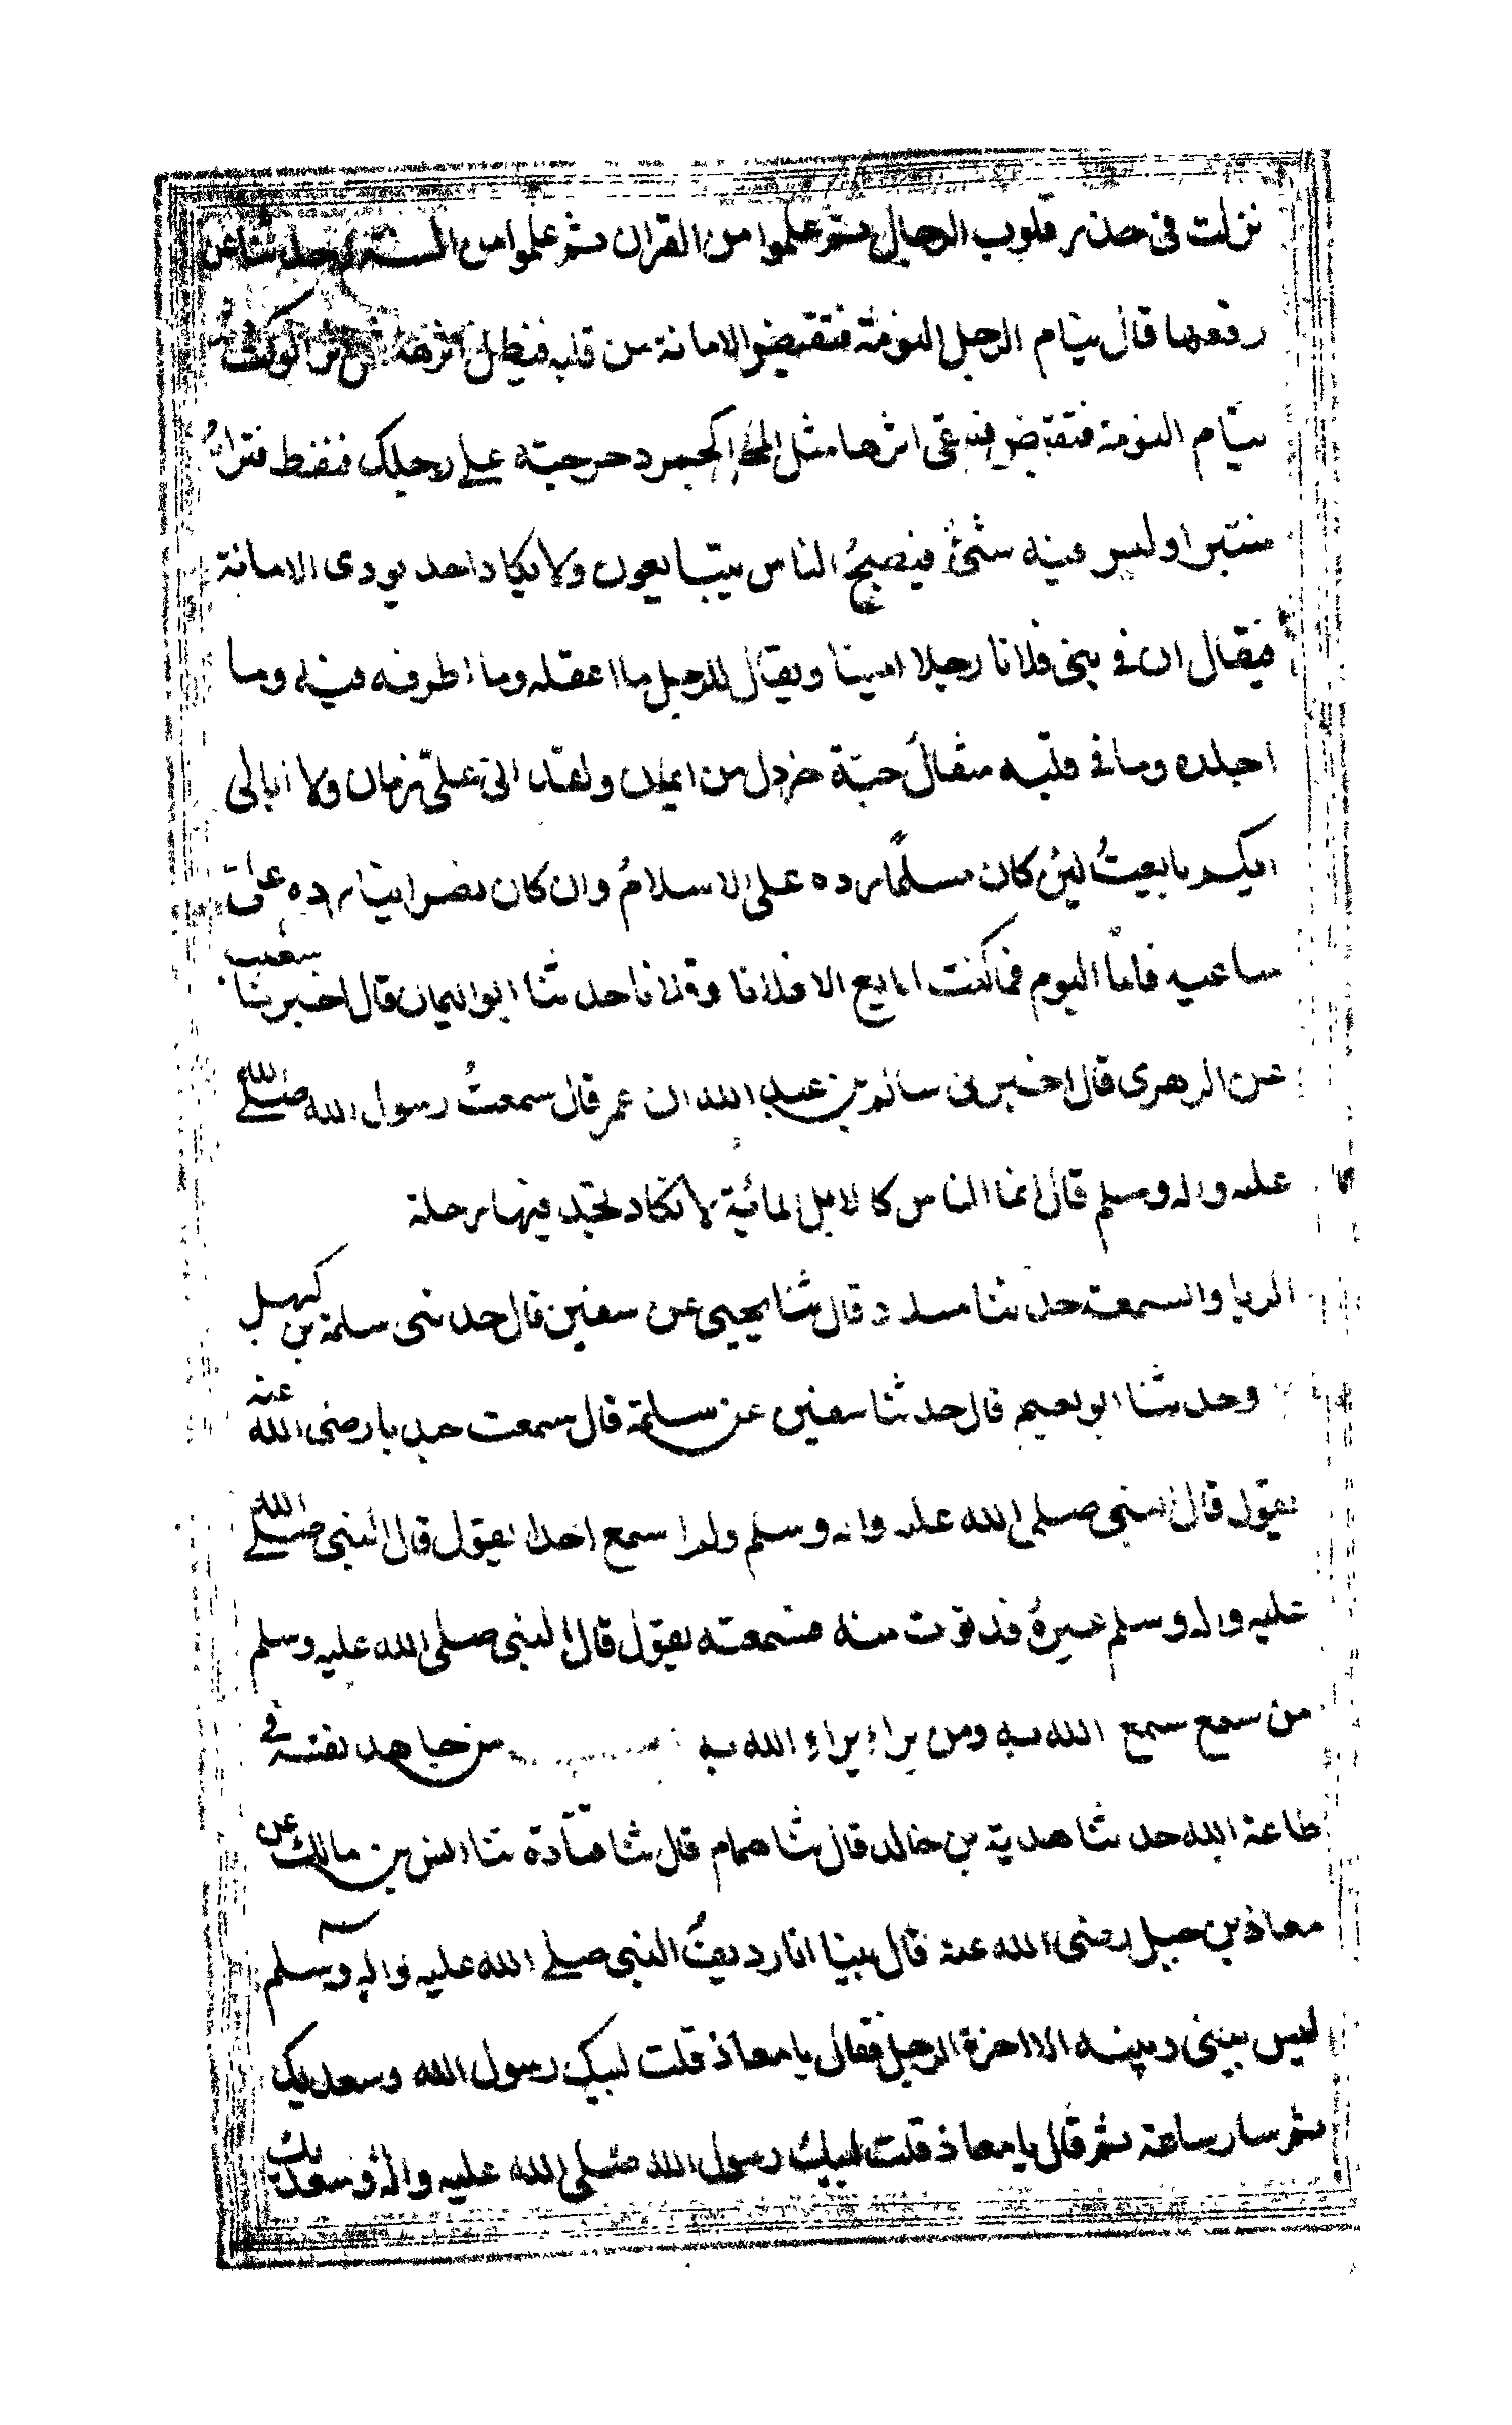 نزلت في جذر قلوب الرجال ثم علموا من القران ثم علموا من السنة وحدثنا عن
رفعها قال ينام الرجل النومة فتقبض الامانة من قلبه فيظل اثرها مثل اثر الوكت ثم
ينام النومة فتقبض فيبقى اثرها مثل المجل كجمر دحرجته على رجلك فنفط فتراه
منتبرا وليس فيه شئ فيصبح الناس يتبايعون ولا يكاد احد يودى الامانة
فيقال ان في بني فلانا رجلا امينا ويقال للرجل ما اعقله وما اظرفه فيه وما
اجلده وما في قلبه مثقال حبة خردل من ايمان ولقد اتى على زمان ولا ابالي
ايكم بايعت لئن كان مسلما رده على الاسلام وان كان نصرانيا رده على
ساعيه فاما اليوم فما كنت ابايع الا فلانا وفلانا حدثنا ابو اليمان قال اخبرنا شعيب
عن الزهرى قال اخبرنى سالم بن عبد الله ان عمر قال سمعت رسول الله صلى الله
عليه واله وسلم قال انما الناس كالابل المائة لا تكاد تجد فيها رحلة
الريا والسمعة حدثنا مسدد قال ثنا يحيى عن سفين قال حدثنى سلمة بن كهيل
وحدثنا ابو نعيم قال حدثنا سفين عن سلمة قال سمعت جندبا رضى الله عنه
يقول قال النبى صلى الله عليه واله وسلم ولم اسمع احدا يقول قال النبى صلى الله
عليه واله وسلم غيره فدنوت منه فسمعته يقول قال النبى صلى الله عليه وسلم
من سمع سمع الله به ومن يراء يراء الله به من جاهد نفسه في
طاعة الله حدثنا هدبة بن خالد قال ثنا همام قال ثنا قتادة ثنا انس بن مالك عن
معاذ بن جبل رضى الله عنه قال بينا انا رديف النبي صلى الله عليه واله وسلم
ليس بينى وبينه الا اخرة الرحل فقال يا معاذ قلت لبيك رسول الله وسعديك
ثم سار ساعة ثم قال يا معاذ قلت لبيك رسول الله صلى الله عليه واله وسعديك